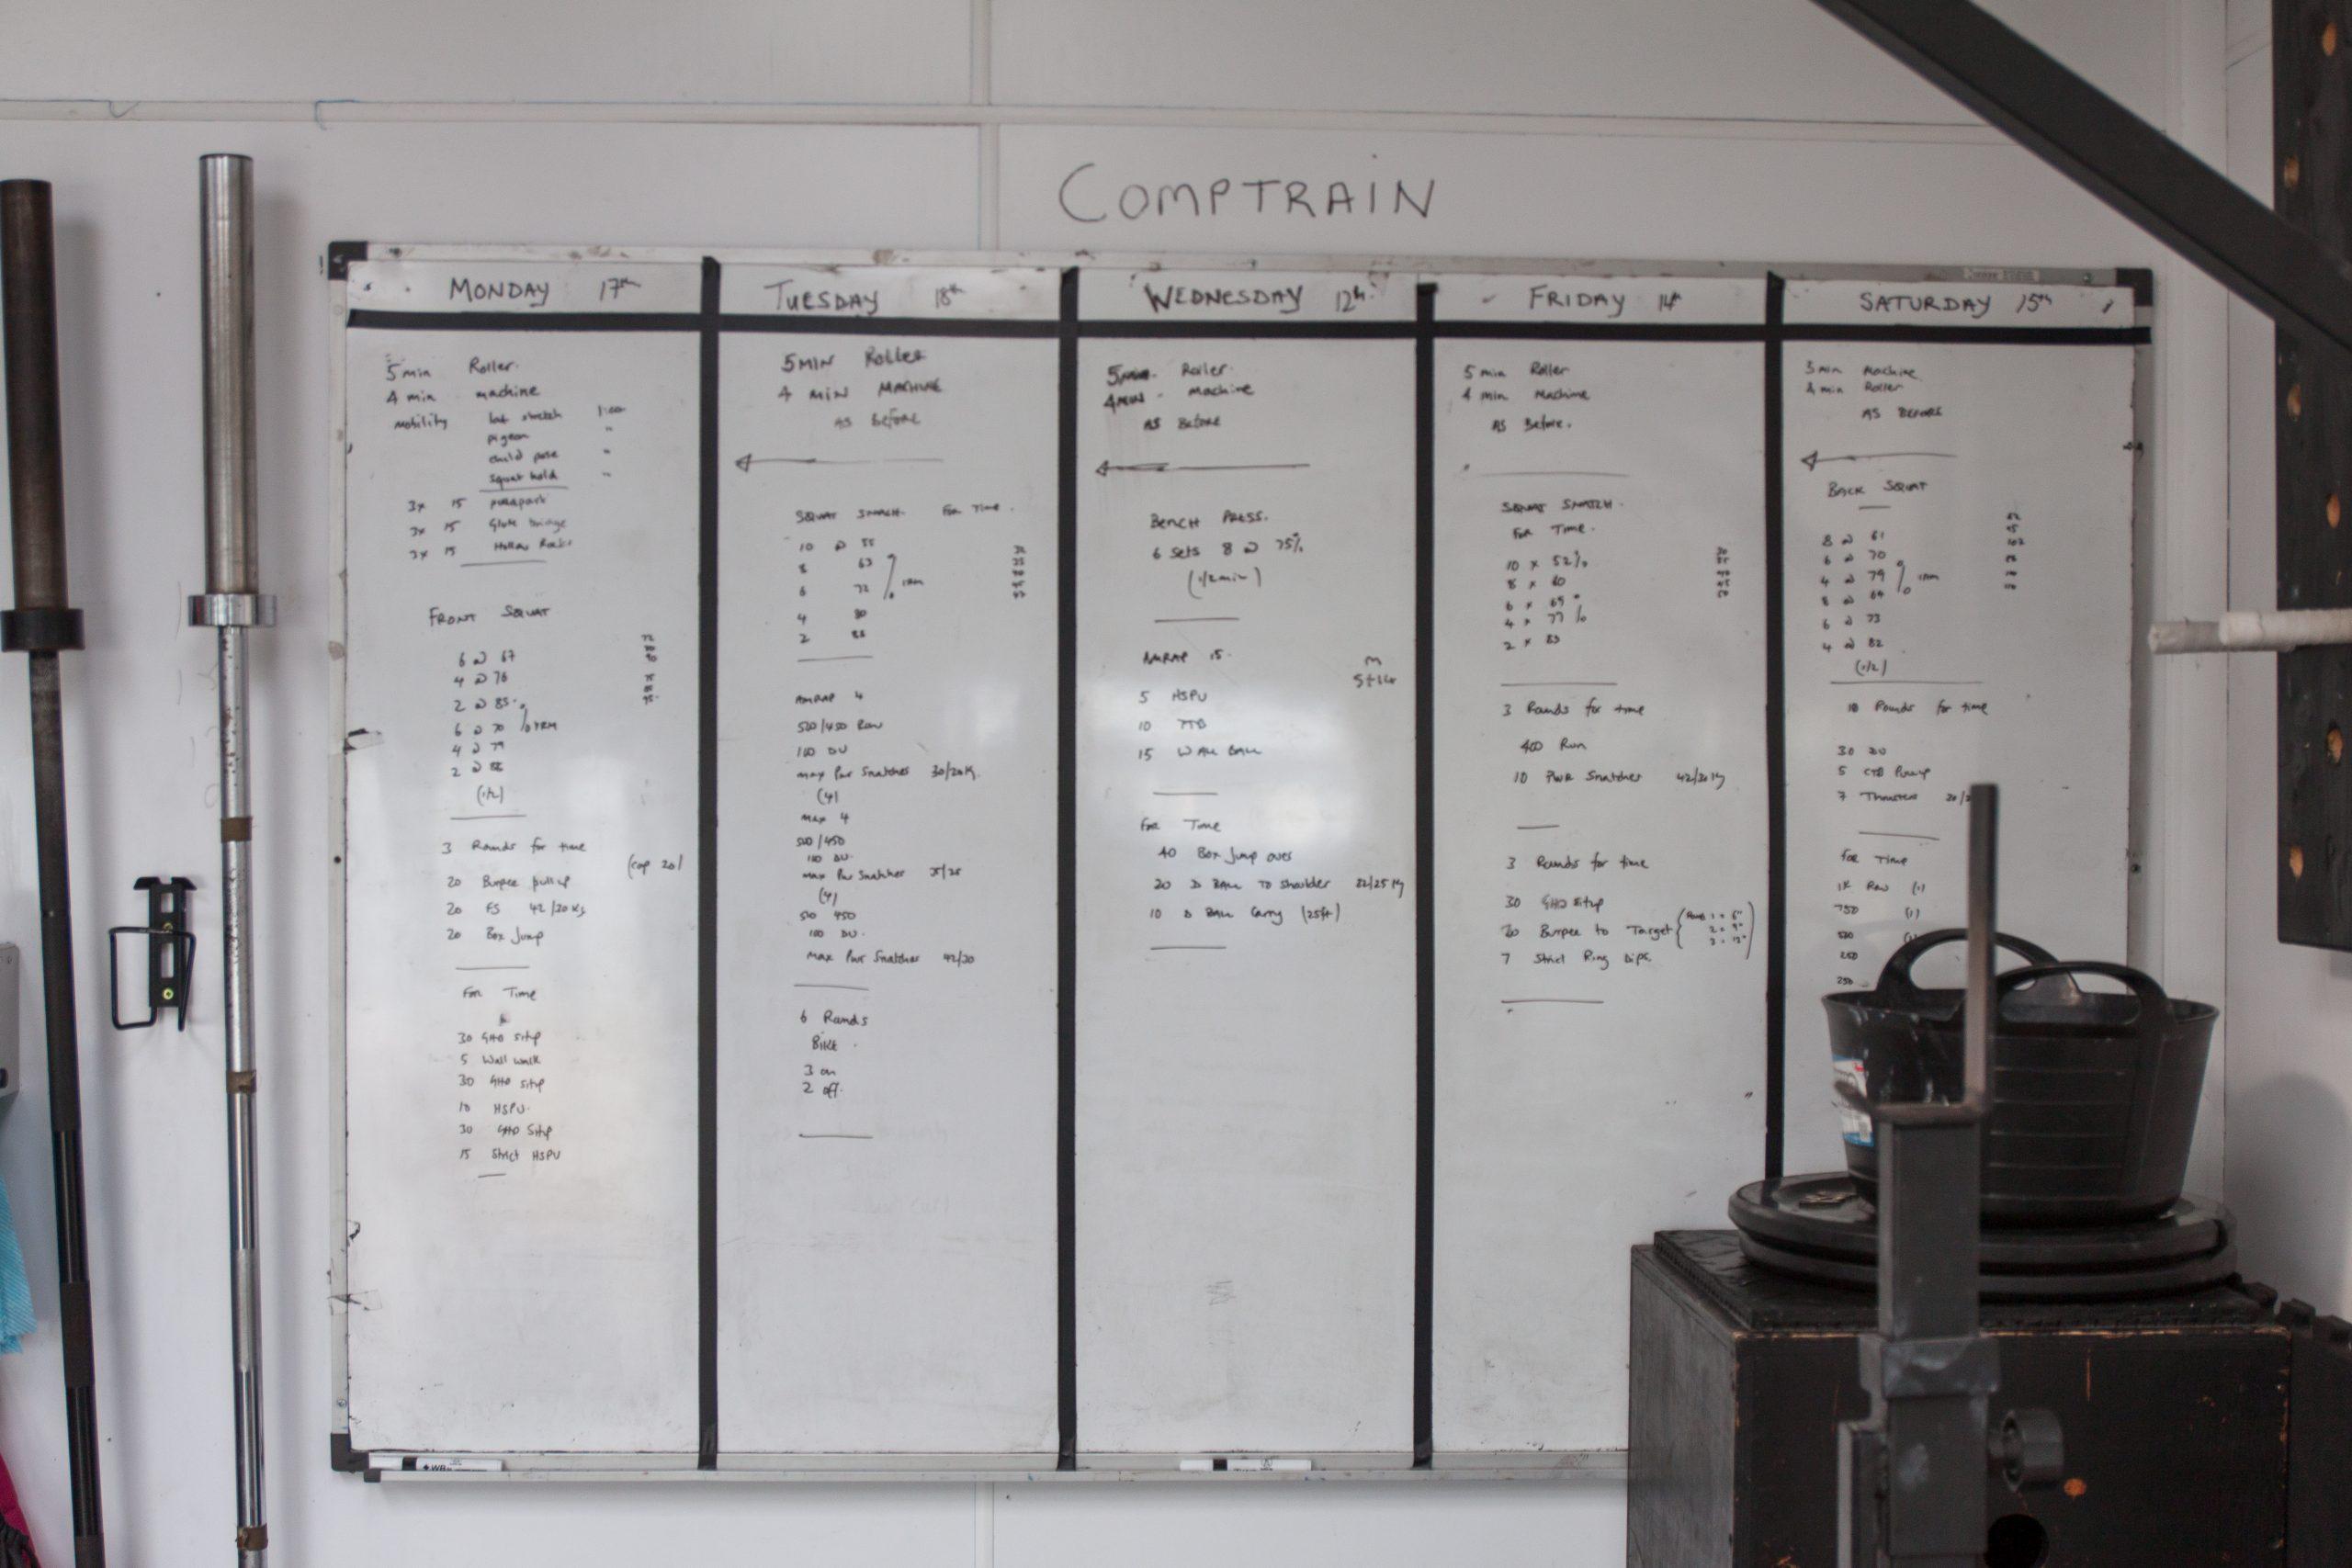 COMPTRAIN
MONDAY 17th
5 min Roller.
4 min machine
mobility lat stretch 1:00
pigeon "
child pose "
squat hold "
3x 15
3x 15 Glute bridge
3x 15 Hollow Rocks
FRONT SQUAT
6 @ 67
4 @ 76
2 @ 85
6 @ 70 % 1RM
4 @ 79
2 @ 88
(1/2)
3 Rounds for time
(cap 20)
20 Burpee pullup
20 FS 42/30kg
20 Box Jump
For Time
30 GHD situp
5 Wall walk
30 GHD situp
10 HSPU.
30 GHD Situp
15 Strict HSPU
TUESDAY 18th
5 MIN ROLLER
4 MIN MACHINE
AS Before
SQUAT SNATCH. For Time.
10 @ 55
8 63
6 72 % 1RM
4 80
2 88
AMRAP 4
500/450 Row
100 DU
max Pwr Snatches 30/20kg.
(4)
max 4
500/450
100 DU.
max Pwr Snatches 35/25
(4)
500 450
100 DU.
max Pwr Snatches 42/30
6 Rounds
Bike.
3 on
2 off.
WEDNESDAY 12th
5min. Roller.
4MIN. Machine
AS Before
BENCH PRESS.
6 sets 8 @ 75%
(1/2min)
AMRAP 15.
5 HSPU
10 TTB
15 WALL BALL
For Time
40 Box Jump over
20 D BALL TO Shoulder 32/25kg
10 D BALL Carry (25ft)
FRIDAY 14th
5 min Roller
4 min Machine
AS Before.
SQUAT SNATCH.
For Time.
10 x 52%
8 x 60
6 x 69
4 x 77 %
2 x 83
3 Rounds for time
400 Run
10 PWR Snatches 42/30kg
3 Rounds for time
30 GHD situp
Burpee to Target
7 Strict Ring Dips
SATURDAY 15th
Machine
4 min Roller
AS BEFORE
BACK SQUAT
8 @ 61
6 @ 70
4 @ 79 % 1RM
8 @ 64
6 @ 73
4 @ 82
(1/2)
10 Rounds for time
30 DU
5 CTB Pullup
7 Thrusters
For Time
1K Row (1)
750 (1)
500
250
250